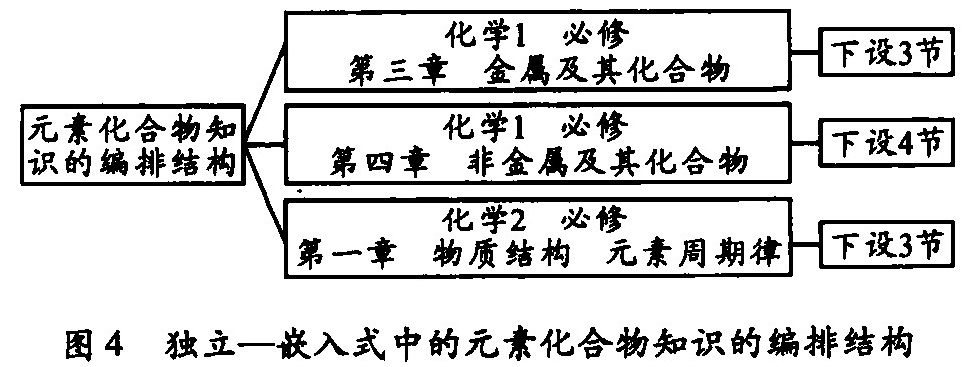 化学1 必修
第三章 金属及其化合物
下设3节
元素化合物知
识的编排结构
化学1 必修
第四章 非金属及其化合物
下设4节
化学2 必修
第一章 物质结构 元素周期律
下设3节
图4 独立—嵌入式中的元素化合物知识的编排结构